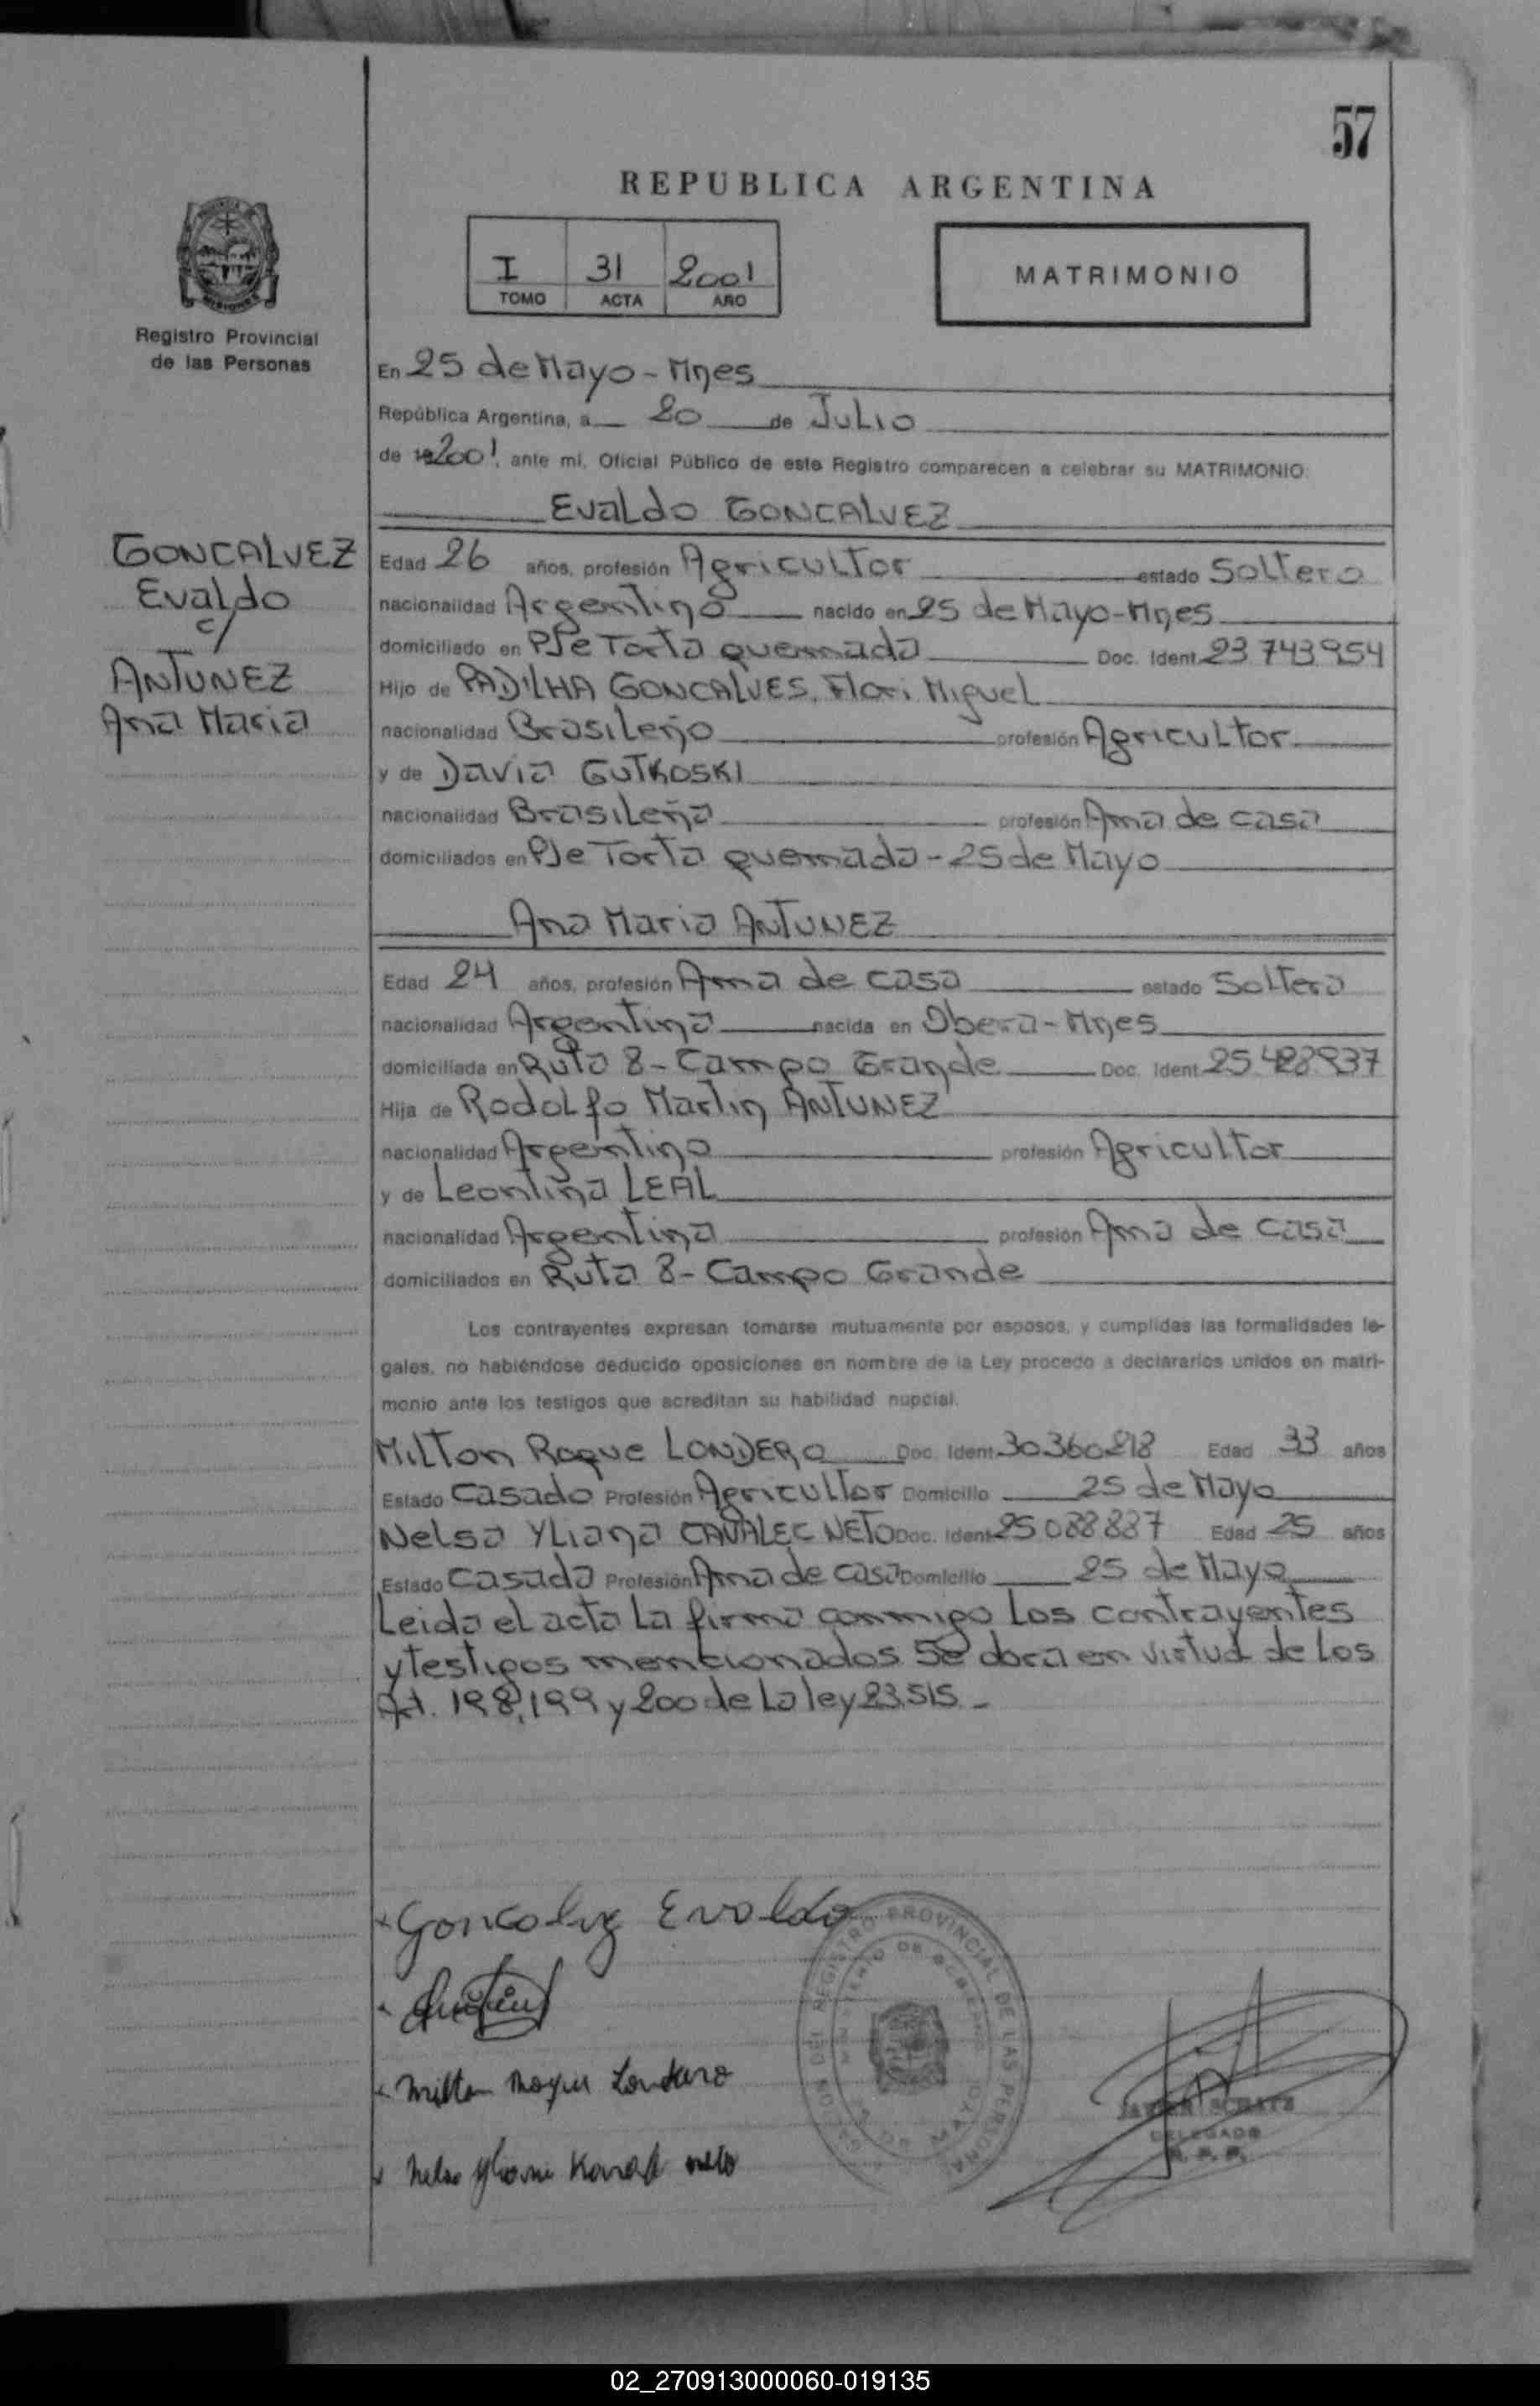 57
REPUBLICA ARGENTINA
I 31 2001
TOMO ACTA AÑO
MATRIMONIO
Registro Provincial
de las Personas
En 25 de Mayo - Mnes
República Argentina, a 20 de Julio
de 19 2001, ante mí, Oficial Público de este Registro comparecen a celebrar su MATRIMONIO:
Evaldo GONCALVEZ
GONCALVEZ
Evaldo
c/
ANTUNEZ
Ana Maria
Edad 26 años, profesión Agricultor estado Soltero
nacionalidad Argentino nacido en 25 de Mayo-Mnes
domiciliado en Pje Torta quemada Doc. Ident. 23.743.954
Hijo de PADILHA GONCALVES, Flori Miguel
nacionalidad Brasileño profesión Agricultor
y de Davia GUTKOSKI
nacionalidad Brasileña profesión Ama de casa
domiciliados en Pje Torta quemada - 25 de Mayo
Ana Maria ANTUNEZ
Edad 24 años, profesión Ama de casa estado Soltera
nacionalidad Argentina nacida en Obera - Mnes
domiciliada en Ruta 8 - Campo Grande Doc. Ident. 25.428.937
Hija de Rodolfo Martin ANTUNEZ
nacionalidad Argentino profesión Agricultor
y de Leontina LEAL
nacionalidad Argentina profesión Ama de casa
domiciliados en Ruta 8 - Campo Grande
Los contrayentes expresan tomarse mutuamente por esposos, y cumplidas las formalidades le-
gales, no habiéndose deducido oposiciones en nombre de la Ley procedo a declararlos unidos en matri-
monio ante los testigos que acreditan su habilidad nupcial.
Milton Roque LONDERO Doc. Ident. 30360218 Edad 33 años
Estado Casado Profesión Agricultor Domicilio 25 de Mayo
Nelsa Yliana CAVALEC NETO Doc. Ident. 25.088.887 Edad 25 años
Estado Casada Profesión Ama de casa Domicilio 25 de Mayo
Leida el acta la firma conmigo los contrayentes
y testigos mencionados Se obra en virtud de los
Art. 198, 199 y 200 de la ley 23.515 -
Goncalvez Evaldo
Milton Roque Londero
REGISTRO PROVINCIAL DE LAS PERSONAS
DELEGADO
02_270913000060-019135